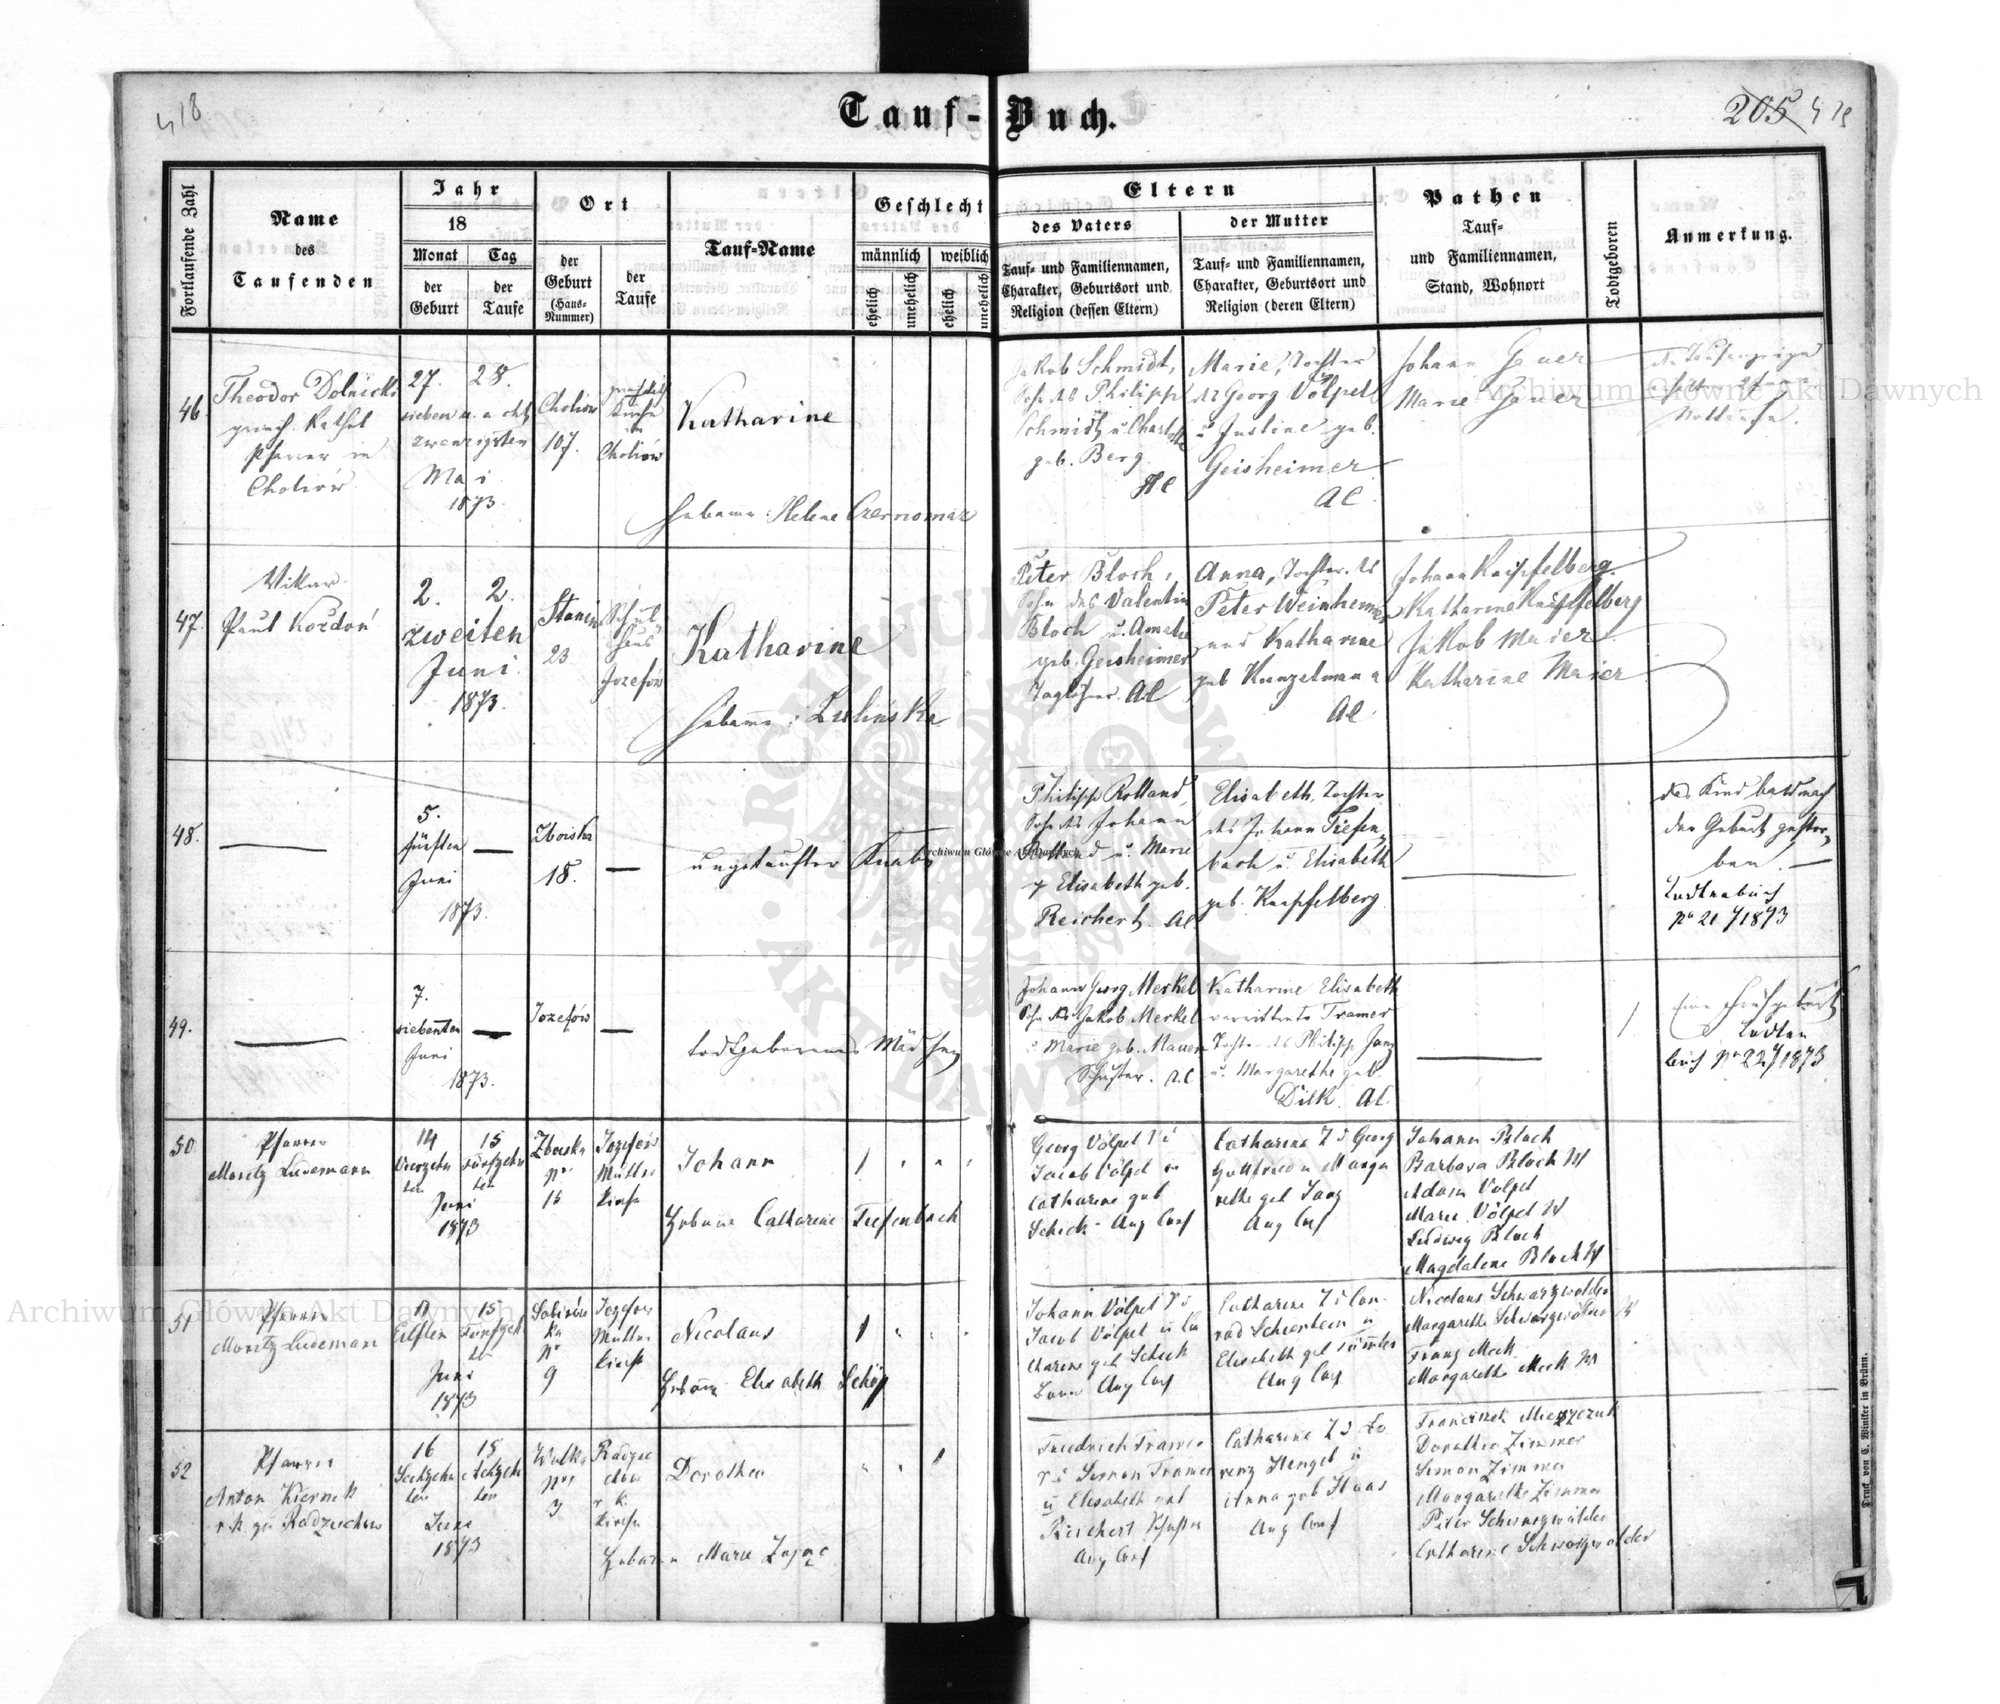 418
Tauf-Buch.
205 419
Fortlaufende Zahl
Name
des
Taufenden
Jahr
18
Monat
der
Geburt
Tag
der
Taufe
Ort
der
Geburt
(Haus-
Nummer)
der
Taufe
Tauf-Name
Geschlecht
männlich
weiblich
ehelich
unehelich
ehelich
unehelich
Eltern
des Vaters
Tauf- und Familiennamen,
Charakter, Geburtsort und
Religion (dessen Eltern)
der Mutter
Tauf- und Familiennamen,
Charakter, Geburtsort und
Religion (deren Eltern)
Pathen
Tauf-
und Familiennamen,
Stand, Wohnort
Todtgeboren
Anmerkung.
46
Theodor Dolnicki
griech. Kathol.
Pfarrer in
Choliów
27. 28.
sieben u. acht
zwanzigsten
Mai
1873.
Choliów
107.
Kirche
in
Choliów
Katharine
Hebamme: Helene Czernomaz
Jakob Schmidt,
Sohn des Philipp
Schmidt u. Charlotte
geb. Berg.
AC
Marie, Tochter
des Georg Völpel
u. Justine geb.
Geisheimer
AC
Johann
Marie
Nottaufe.
47.
Vikar
Paul Kożdoń
2. 2.
zweiten
Juni.
1873.
Stanin
23
Schul
haus
Jozefów
Katharine
Hebamme: Lulinska
Peter Bloch,
Sohn des Valentin
Bloch u. Amalie
geb. Geisheimer
Taglöhner. AC
Anna, Tochter des
Peter Weinheimer
und Katharine
geb. Kunzelmann
AC
Johann Knipfelberg
Katharine Knipfelberg
Jakob Maier
Katharine Maier
48.
5.
fünften
Juni
1873.
Zboiska
18.
ungetaufter Knabe
Philipp Rolland,
Sohn des Johann
Rolland u. Marie
Elisabeth geb.
Reichert. AC
Elisabeth, Tochter
des Johann Tiefen-
bach u. Elisabeth
geb. Knipfelberg
das Kind bald nach
der Geburt gestor-
ben.
Todtenbuch
No 21/1873
49.
7.
siebenten
Juni
1873.
Jozefów
todtgeborenes Mädchen
Johann Georg Merkel
Sohn des Jakob Merkel
u. Marie geb. Mauer
Schuster. AC
Katharine Elisabeth
verwittwete Tramer
Tochter des Philipp Jung
u. Margarethe geb.
Dilk. AC.
/
Eine Frühgeburt
Todten
buch No 22/1873
50
Pfarrer
Moritz Ludemann
14 15
Vierzehn fünfzehn
ten ten
Juni
1873
Zboiska
Nr
15
Jozefów
Mutter
kirche
Johann
1
Hebamme Catharine Tiefenbach
Georg Völpel S d
Jacob Völpel u
Catharine geb
Schick Aug Conf
Catharine T d Georg
Gottfried u Marga
rethe geb Jung
Aug Conf
Johann Bloch
Barbara Bloch
Adam Völpel
Marie Völpel
Ludwig Bloch
Magdalene Bloch
51
Pfarrer
Moritz Ludemann
11 15
Eilften Fünfzehn
ten
Juni
1873
Nr
9
Jozefow
Mutter
kirche
Nicolaus
1
Hebamme Elisabeth Schöp
Johann Völpel S d
Jacob Völpel u Ca
tharine geb Schick
Aug Conf
Catharine T d Con-
rad Schoenlein u
Elisabeth geb Kümmler
Aug Conf
Nicolaus Schwarzwalder
Margarethe Schwarzwalder
Franz Meck
Margarethe Meck
52
Pfarrer
Anton Kiernik
r k zu Radziechow
16 18
Sechzehn Achtzehn
ten ten
Juni
1873
Wulka
Nr
3
Radzie
chow
r. k.
Kirche
Dorothea
1
Hebamme Marie Zając
Friedrich Tramer
S d Simon Tramer
u Elisabeth geb
Reichert Schuster
Aug Conf
Catharine T d Lo
renz Stengel u
Anna geb Haas
Aug Conf
Dorothea Zimmer
Simon Zimmer
Margarethe Zimmer
Peter Schwarzwälder
Catharine Schwarzwalder
Druck von C. Winiker in Brünn.
Archiwum Główne Akt Dawnych
Archiwum Główne Akt Dawnych
Archiwum Główne Akt Dawnych
ARCHIWUM GŁÓWNE AKT DAWNYCH